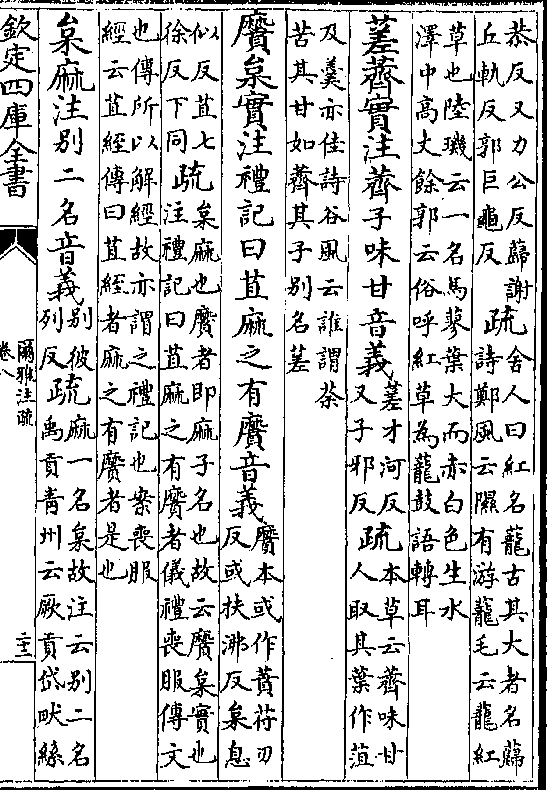 恭反又力公反蘬謝
丘軌反郭巨龜反
疏
舍人曰紅名蘢古其大者名蘬
詩鄭風云隰有游龍毛云龍紅
草也陸璣云一名馬蓼葉大而赤白色生水
澤中高丈餘郭云俗呼紅草為蘢鼓語轉耳
蒫薺實注薺子味甘音義
蒫才河反
又子邪反
疏
本草云薺味甘
人取其葉作菹
及羹亦佳詩谷風云誰謂荼
苦其甘如薺其子別名蒫
黂枲實注禮記曰苴麻之有黂音義
黂本或作蕡苻刃
反或扶沸反枲息
似反苴七
徐反下同
疏
枲麻也黂者即麻子名也故云黂枲實也
注禮記曰苴麻之有黂者儀禮喪服傳文
也傳所以解經故亦謂之禮記也案喪服
經云苴絰傳曰苴絰者麻之有黂者是也
枲麻注別二名音義
別彼
列反
疏
麻一名枲故注云別二名
禹貢青州云厥貢岱畎絲
欽定四庫全書
爾雅注疏
卷八
二十三